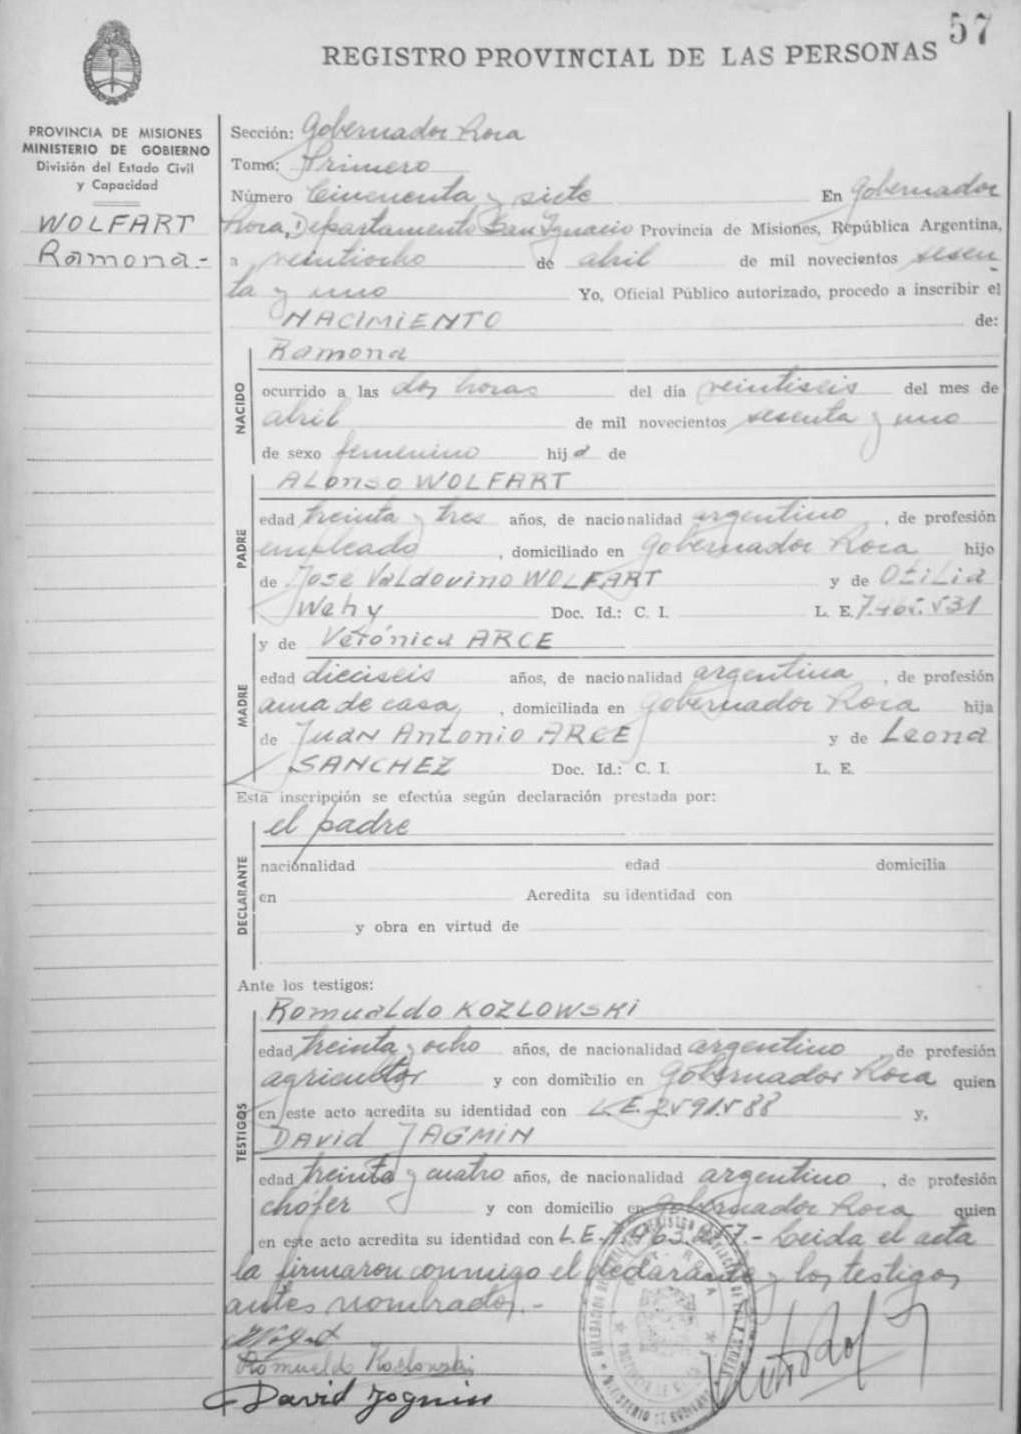 57
REGISTRO PROVINCIAL DE LAS PERSONAS
PROVINCIA DE MISIONES
MINISTERIO DE GOBIERNO
División del Estado Civil
y Capacidad
WOLFART
Ramona.-
Sección: Gobernador Roca
Tomo: Primero
Número Cincuenta y siete En Gobernador
Roca, Departamento San Ignacio Provincia de Misiones, República Argentina,
a veintiocho de abril de mil novecientos sesen
ta y uno Yo, Oficial Público autorizado, procedo a inscribir el
NACIMIENTO de:
NACIDO
Ramona
ocurrido a las dos horas del día veintiseis del mes de
abril de mil novecientos sesenta y uno
de sexo femenino hija de
PADRE
ALonso WOLFART
edad treinta y tres años, de nacionalidad argentino, de profesión
empleado, domiciliado en Gobernador Roca hijo
de José Valdovino WOLFART y de OtiLia
Wehy Doc. Id.: C. I. L. E.
MADRE
y de Verónica ARCE
edad dieciseis años, de nacionalidad argentina, de profesión
ama de casa, domiciliada en Gobernador Roca hija
de Juan Antonio ARCE y de Leona
SANCHEZ Doc. Id.: C. I. L. E.
Esta inscripción se efectúa según declaración prestada por:
DECLARANTE
el padre
nacionalidad edad domicilia
en Acredita su identidad con
y obra en virtud de
Ante los testigos:
TESTIGOS
Romualdo KOZLOWSKI
edad treinta y ocho años, de nacionalidad argentino, de profesión
agricultor y con domicilio en Gobernador Roca quien
en este acto acredita su identidad con L.E. 2591588 y,
DAVID JAGMIN
edad treinta y cuatro años, de nacionalidad argentino, de profesión
chófer y con domicilio en Gobernador Roca quien
en este acto acredita su identidad con L.E. .- Leida el acta
la firmaron conmigo el declarante y los testigos
antes nombrados.-
Romualdo Kozlowski
David Jagmin